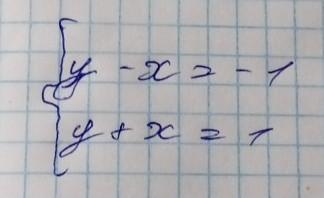 y - x = -1
y + x = 1